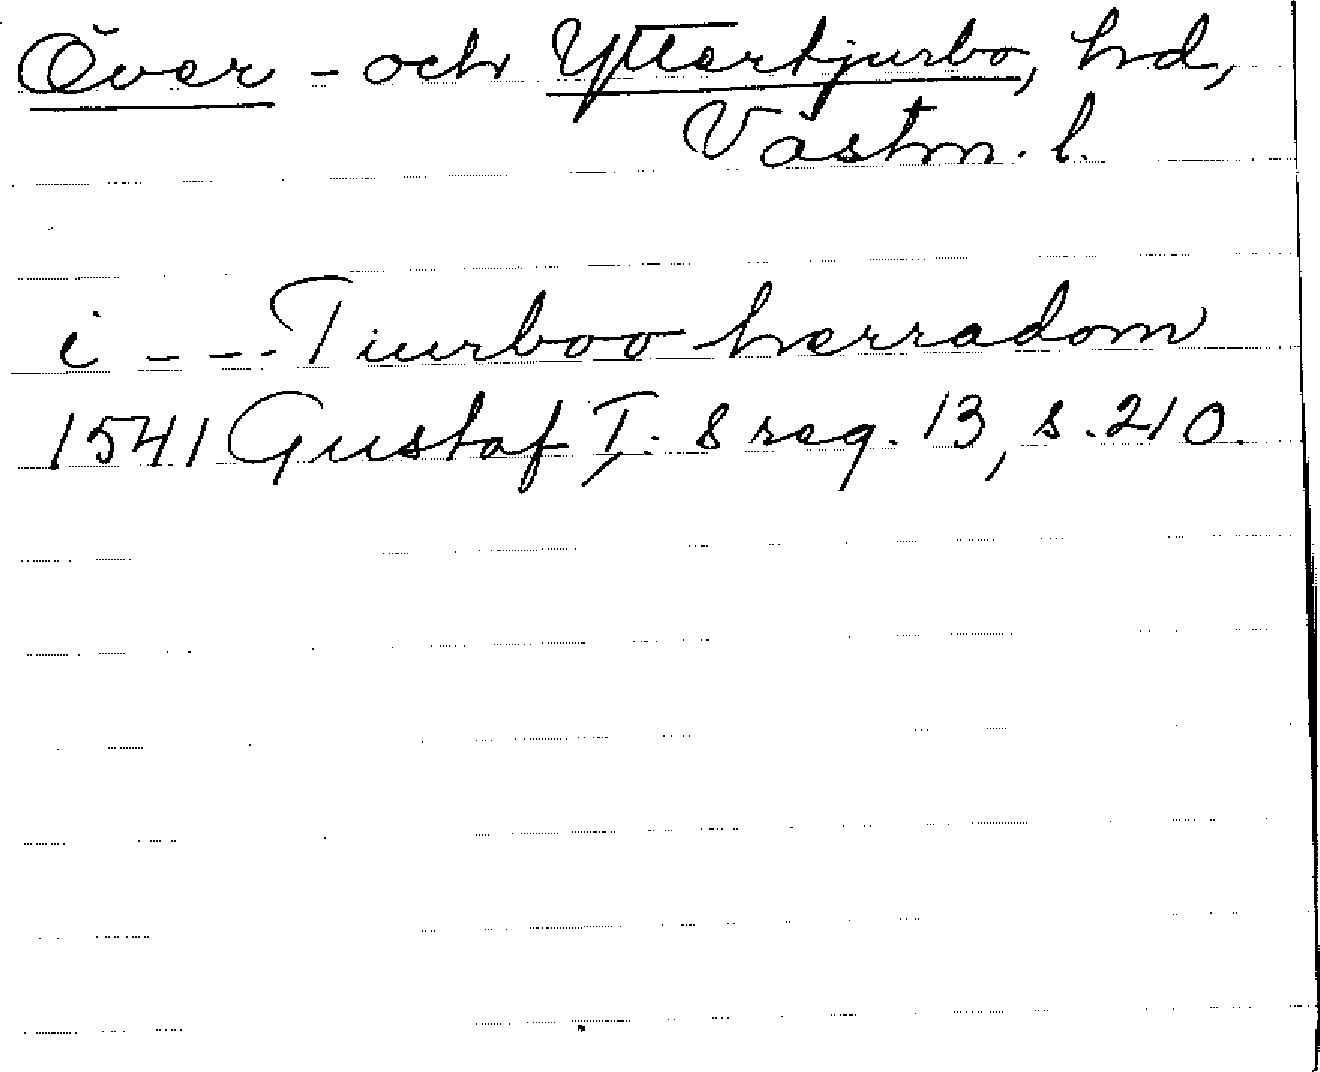 Över - och Yttertjurbo, hd,
Västm. l.
i - - - Tiurboo herradom
1541 Gustaf I:s reg. 13, s. 210.